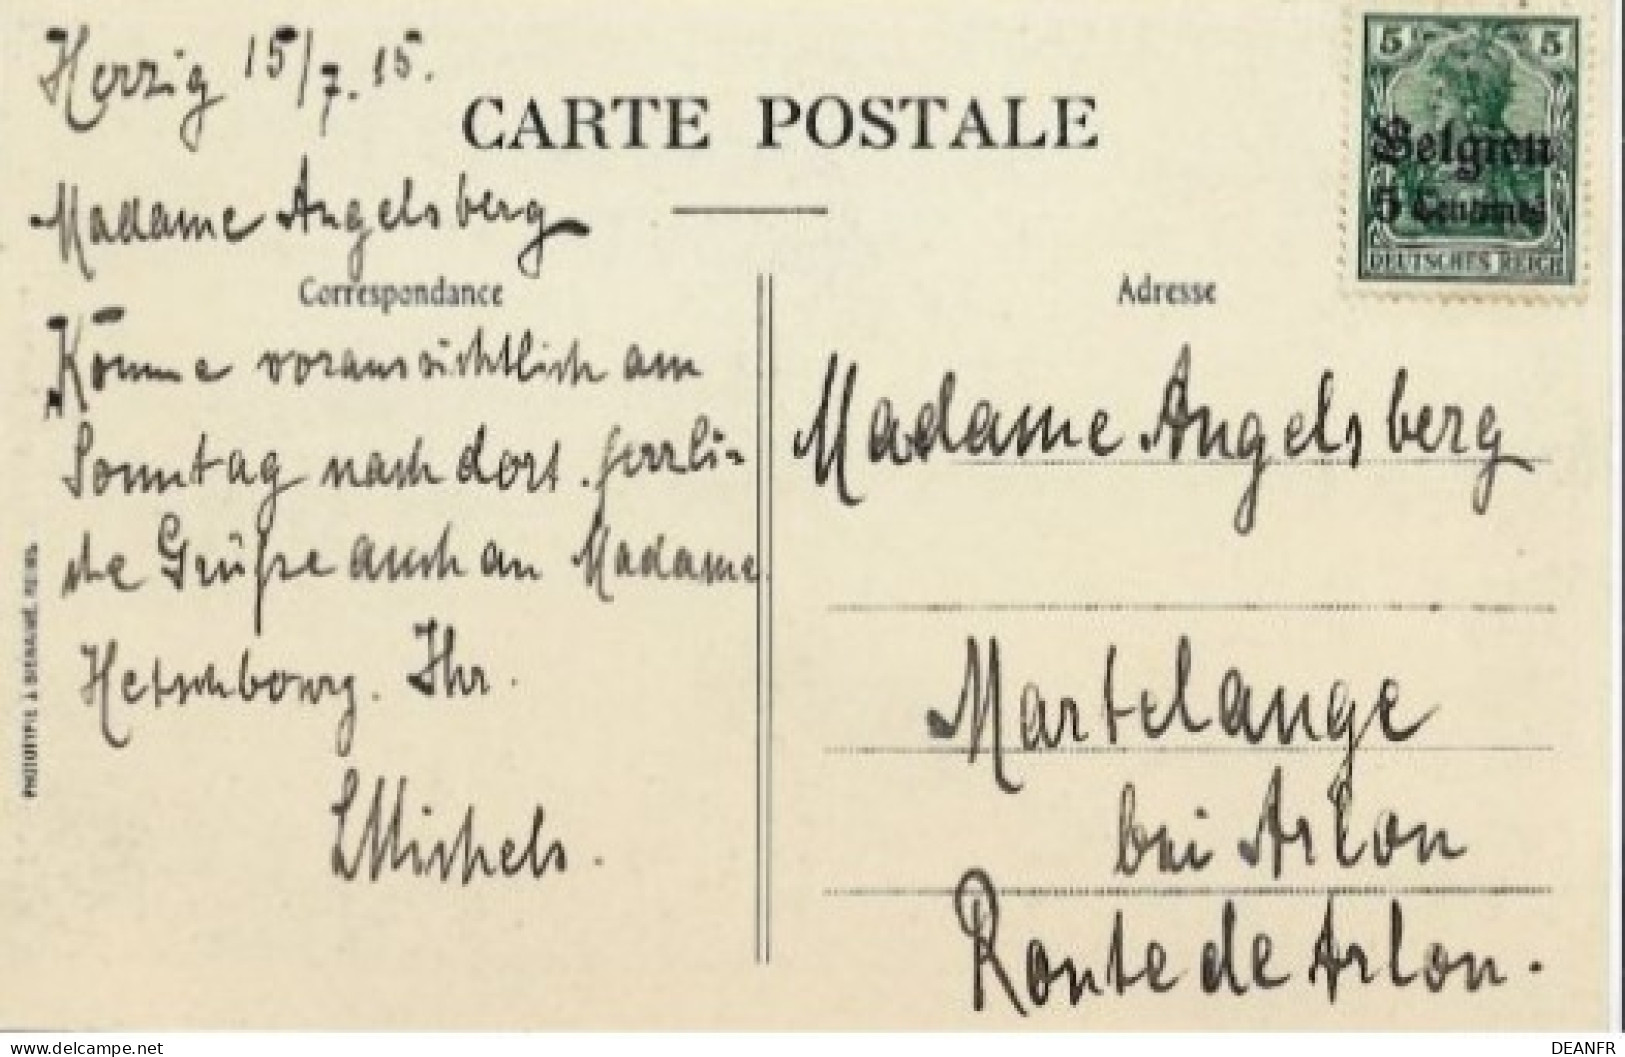 Herzig 15/7.15.
CARTE POSTALE
Madame Angelsberg
Correspondance
Komme voraussichtlich am
Sonntag nach dort. Herzli-
che Grüße auch an Madame
Hetschbourg. Ihr.
L Michels.
PHOTOTYPIE J. BIENAIMÉ, REIMS
5 5
Belgien
5 Centimes
DEUTSCHES REICH
Adresse
Madame Angelsberg
Martelange
bei Arlon
Route de Arlon.
www.delcampe.net
DEANFR